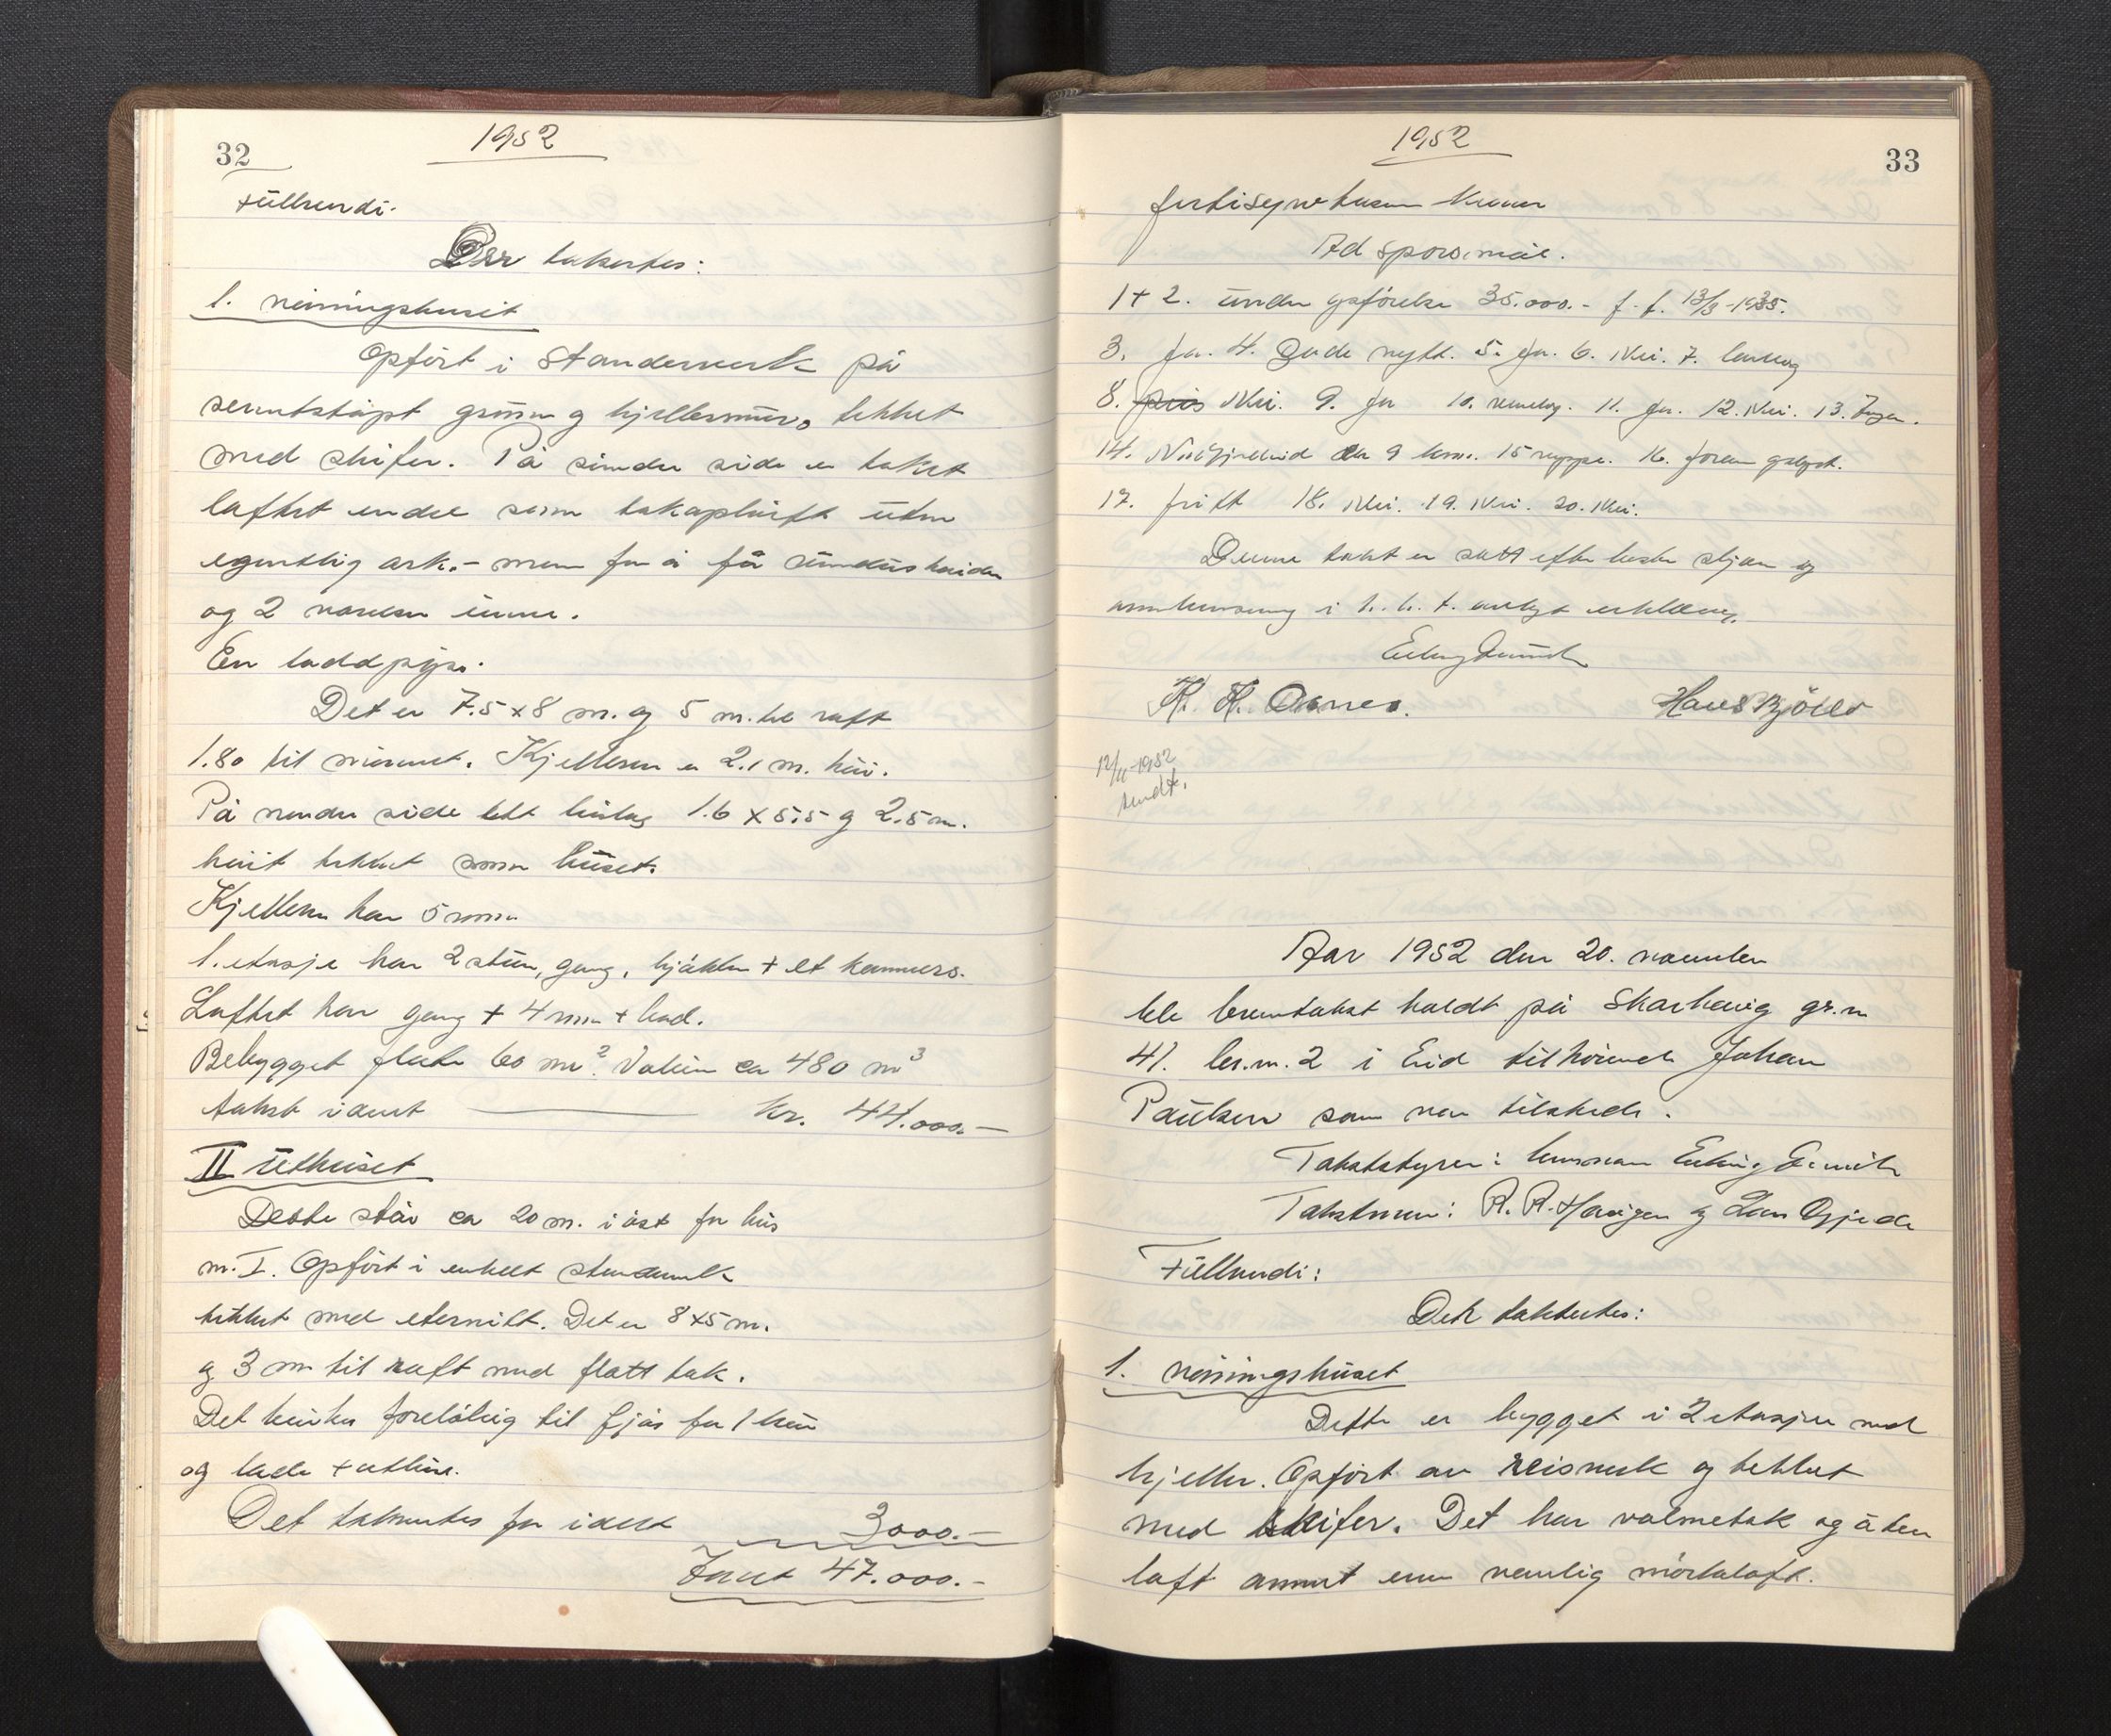 32
1952
Fullvendi.
Der takertes:
1. våningshuset
Opført i Standerverk på
sementstøpt grunn g kjellermur, tekket
med skifer. På søndre side er taket
løftet endel som takopløft uten
egentlig ark. - men for å få vindushøide
og 2 værelser inne.
En loddpipe.
Det er 7.5 x 8 m. og 5 m. til raft
1.80 til mønnet. Kjelleren er 2.1 m. høi.
På nordre side lett bislag 1.6 x 5.5 g 2.5 m.
høit tekket som huset.
Kjelleren har 5 rom.
1. etasje har 2 stuer, gang, kjøkken + et kammers.
Loftet har gang + 4 rum + bad.
Bebygget flate 60 m². Volum ca 480 m³
takst idart kr. 44.000.-
II Uthuset
Dette står ca 20 m. i øst for hus
nr. I. Opført i enkelt standerverk
tekket med eternitt. Det er 8 x 5 m.
g 3 m til raft med flatt tak.
Det brukes foreløbig til fjøs for 1 ku
og lade + uthus.
Det takseres for idart 3000.-
Takst 47.000.-
1952
33
Ad spørsmål.
1 + 2. under opførelse 35.000.- f. f. 13/3-1935.
3. Ja. 4. Gode nytt. 5. Ja. 6. Nei. 7. landveg
8. Nei. 9. Ja 10. 11. Ja. 12. Nei. 13. Ingen.
14. ca 9 km. 15 16.
17. fritt 18. Nei. 19. Nei. 20. Nei.
Denne takst er satt efter beste skjøn og
overbevisning i h. h. t. avlagt erklæring.
H. H. Aarnes. Hans Bjølls
12/11-1952
sendt.
Aar 1952 den 20. november
ble branntakst holdt på Skarhaug gr.nr
41. br.nr. 2 i Eid tilhørende Johan
Paulsen som var tilstede.
Takstbestyrer: lensmann Erling
Takstmenn: R. R. Haugen g Lars Gjerde
Fullvendi:
Det taksertes:
1. våningshuset
Dette er bygget i 2 etasjer med
kjeller. Opført av reisverk og tekket
med skifer. Det har valmetak og uten
loft annet enn nemlig mørkeloft.